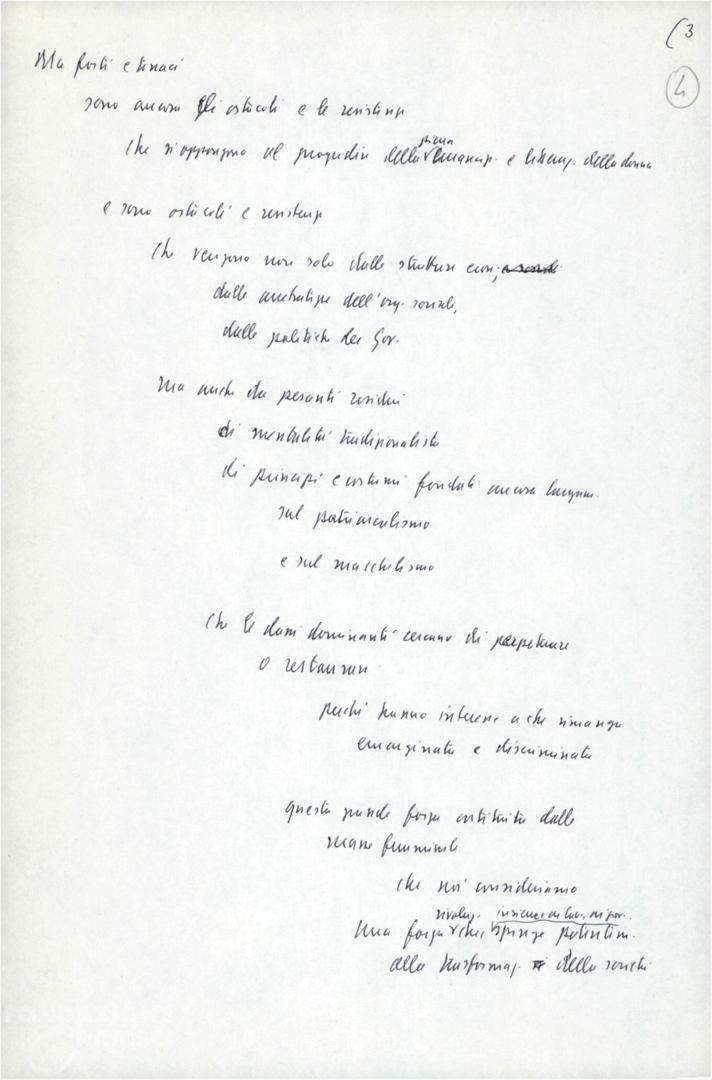 (3
4
Ma forti e tenaci
sono ancora gli ostacoli e le resistenze
che si oppongono al progredire della piena emancip. e liberaz. della donna
e sono ostacoli e resistenze
che vengono non solo dalle strutture econ.,
dalle arretratezze dell'org. sociale,
dalle politiche dei Gov.
ma anche da pesanti residui
di mentalità tradizionalista
di principi e costumi fondati ancora largam.
sul patriarcalismo
e sul maschilismo
che le classi dominanti cercano di perpetuare
o restaurare
perché hanno interesse a che rimanga
emarginata e discriminata
questa grande forza costituita dalle
masse femminili
che noi consideriamo
rivoluz. insieme
una forza che, spinge potentem.
alla trasformaz. della società